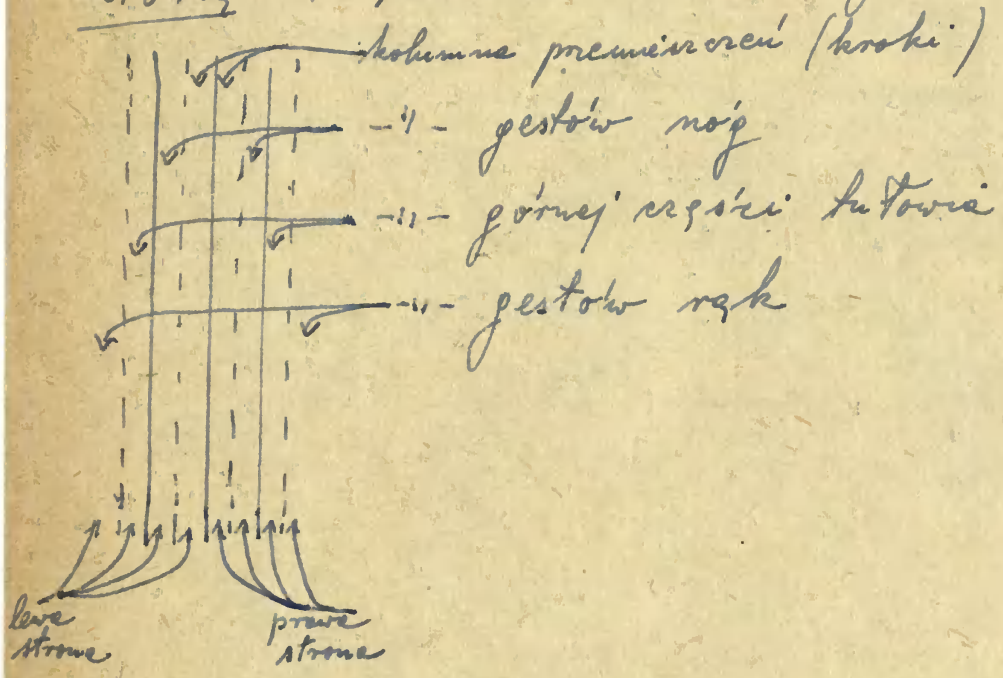 kolumna przemieszczeń (kroki)
-"- gestów nóg
-"- górnej części tułowia
-"- gestów rąk
lewa
strona
prawa
strona